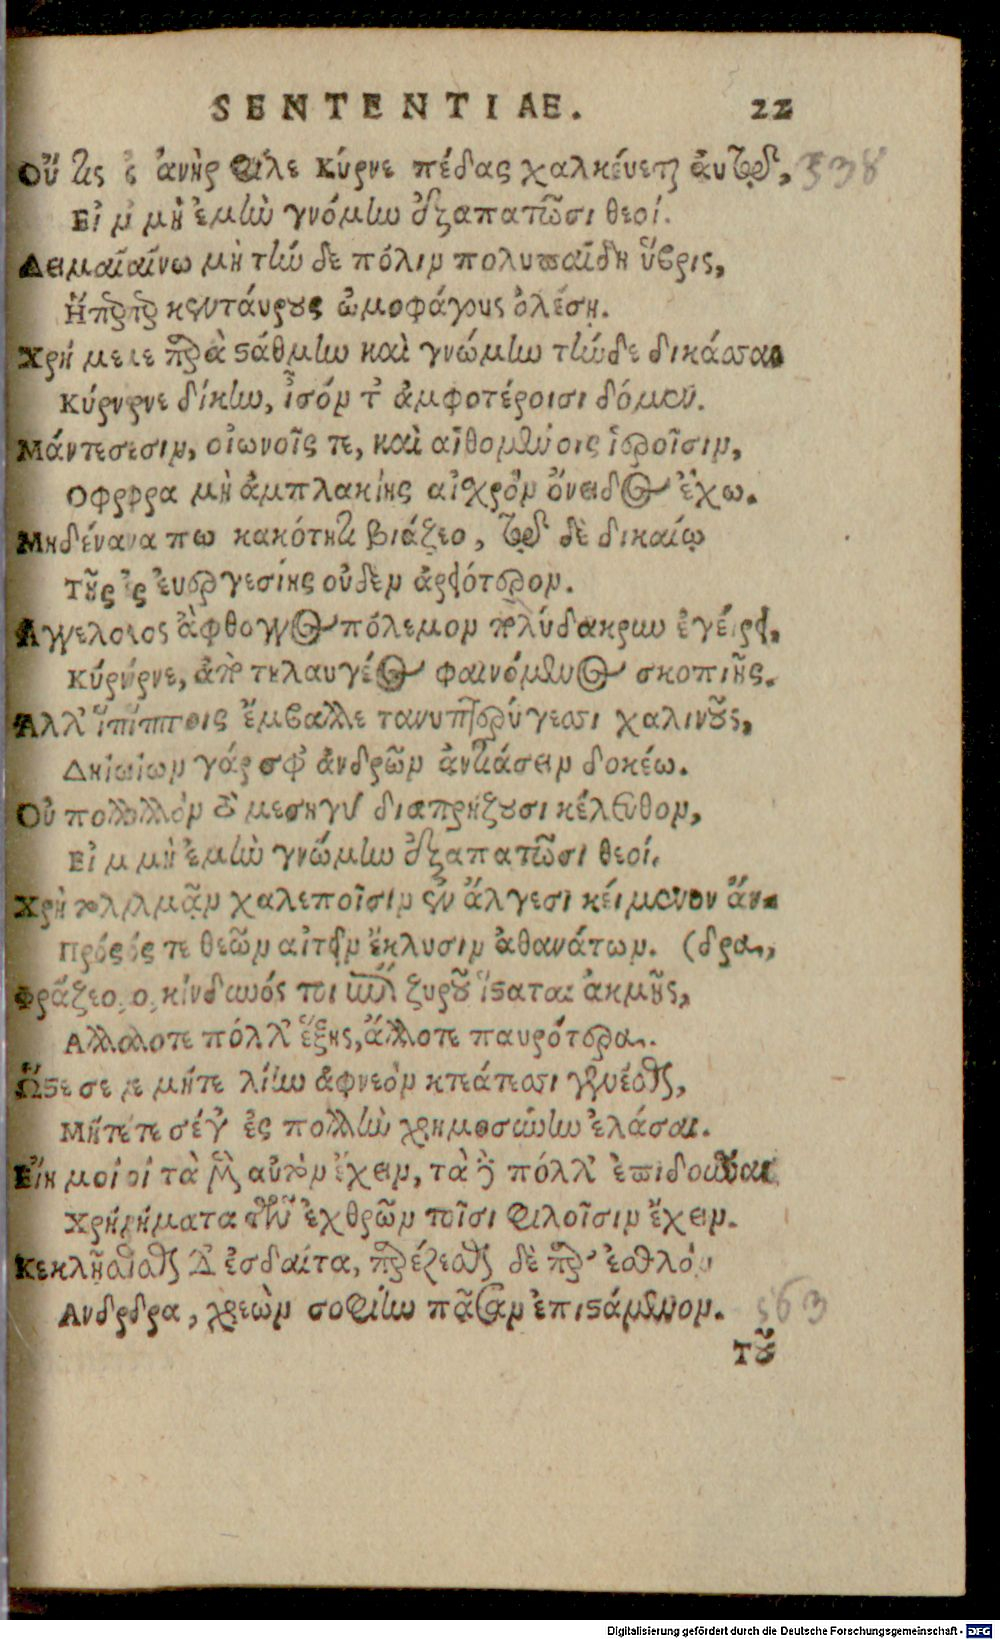 SENTENTIAE. 22
Οὔτις ἀνὴρ φίλε Κύρνε πέδας χαλκεύεται αὐτῷ, 538
Εἰ μὴ ἐμὴν γνόμην ἐξαπατῶσι θεοί.
Δειμαίνω μὴ τήνδε πόλιν πολυπαΐδη ὕβρις,
Ἥπερ κενταύρους ὠμοφάγους ὀλέσῃ.
Χρή με παρὰ στάθμην καὶ γνώμην τήνδε δικάσσαι
Κύρνε δίκην, ἶσόν τ' ἀμφοτέροισι δόμεν.
Μάντεσιν, οἰωνοῖς τε, καὶ αἰθομένοις ἱεροῖσιν,
Οφρα μὴ ἀμπλακίης αἰχρὸν ὄνειδος ἔχω.
Μηδένα πω κακότητι βιάζεο, τῷ δὲ δικαίῳ
Τῆς εὐεργεσίης οὐδὲν ἀρειότερον.
Αγγελος ἄφθογγος πόλεμον πολύδακρυν ἐγείρει,
Κύρνε, ἀπὸ τηλαυγέος φαινόμενος σκοπιῆς.
Αλλ' ἵπποις ἔμβαλλε τανυπτερύγεσσι χαλινοὺς,
Δηίων γάρ σφ' ἀνδρῶν ἀντιάσειν δοκέω.
Οὐ πολλὸν τὸ μεσηγὺ διαπρήξουσι κέλευθον,
Εἰ μὴ ἐμὴν γνώμην ἐξαπατῶσι θεοί.
Χρὴ τολμᾷν χαλεποῖσιν ἐν ἄλγεσι κείμενον ἄν-
Πρός τε θεῶν αἰτεῖν ἔκλυσιν ἀθανάτων. (δρα,
Φράζεο, κίνδυνός τοι ἐπὶ ξυροῦ ἵσταται ἀκμῆς,
Αλλοτε πόλλ' ἕξεις, ἄλλοτε παυρότερα.
Ὥστε σε μήτε λίην ἀφνεὸν κτεάτεσσι γενέσθαι,
Μήτε σέγ' ἐς πολλὴν χρημοσύνην ἐλάσαι.
Εἴη μοι τὰ μὲν αὐτὸν ἔχειν, τὰ δὲ πόλλ' ἐπιδοῦναι
Χρήματα τῶν ἐχθρῶν τοῖσι φίλοῖσιν ἔχειν.
Κεκλῆσθαι δ' ἐσδαῖτα, παρέζεσθαι δὲ παρ' ἐσθλὸν
Ανδρα, χρεὼν σοφίην πᾶσαν ἐπιστάμενον. 563
Τοῦ
Digitalisierung gefördert durch die Deutsche Forschungsgemeinschaft - DFG